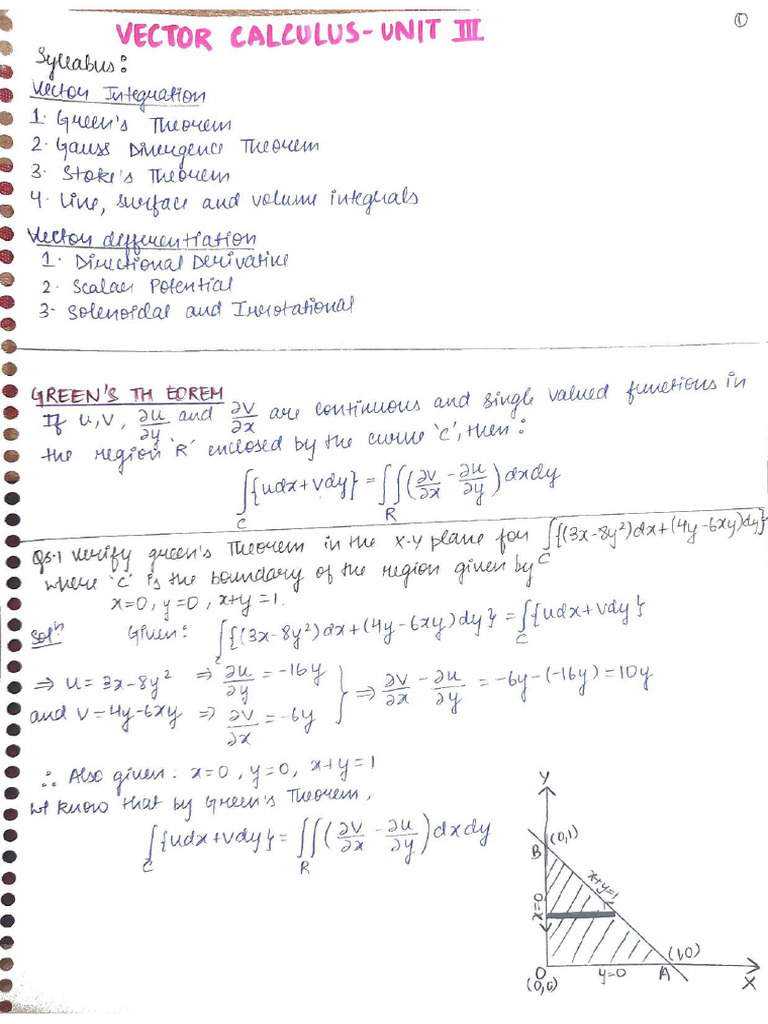 ①
VECTOR CALCULUS - UNIT III
Syllabus:
Vector Integration
1. Green's Theorem
2. Gauss Divergence Theorem
3. Stoke's Theorem
4. Line, surface and volume integrals
Vector differentiation
1. Directional Derivative
2. Scalar Potential
3. Solenoidal and Irrotational
GREEN'S TH EOREM
If u, v, ∂u/∂y and ∂v/∂x are continuous and single valued functions in
the region 'R' enclosed by the curve 'C', then:
∫_C {udx + vdy} = ∬_R (∂v/∂x - ∂u/∂y) dxdy
Qs.1 Verify green's Theorem in the X-Y plane for ∫_C {(3x-8y²)dx+(4y-6xy)dy}
where 'C' is the boundary of the region given by
x=0, y=0, x+y=1.
Solⁿ Given: ∫_C {(3x-8y²)dx+(4y-6xy)dy} = ∫_C {udx+vdy}
⇒ u = 3x-8y² ⇒ ∂u/∂y = -16y
and v = 4y-6xy ⇒ ∂v/∂x = -6y } ⇒ ∂v/∂x - ∂u/∂y = -6y-(-16y) = 10y
∴ Also given: x=0, y=0, x+y=1
We know that by Green's Theorem,
∫_C {udx+vdy} = ∬_R (∂v/∂x - ∂u/∂y) dxdy
Y
B (0,1)
x+y=1
x=0
(1,0)
O y=0 A X
(0,0)